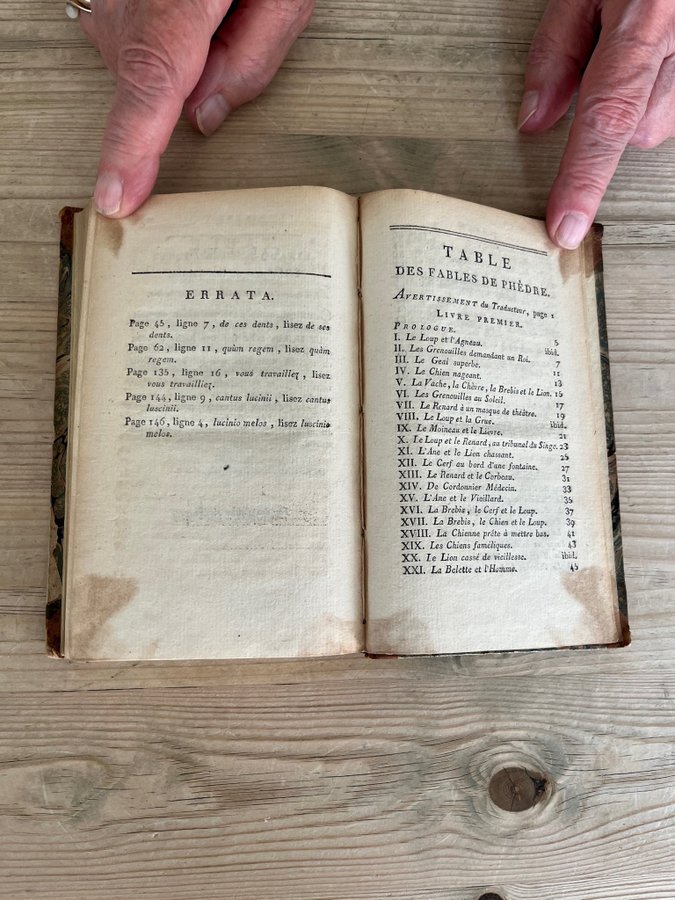 ERRATA.
Page 45, ligne 7, de ces dents, lisez de ses
dents.
Page 62, ligne 11, quùm regem, lisez quàm
regem.
Page 135, ligne 16, vous travaillez, lisez
vous travailliez.
Page 144, ligne 9, cantus lucinii, lisez cantus
luscinii.
Page 146, ligne 4, lucinio melos, lisez luscinio
melos.
TABLE
DES FABLES DE PHÈDRE.
AVERTISSEMENT du Traducteur, page 1
LIVRE PREMIER.
PROLOGUE. 5
I. Le Loup et l'Agneau. ibid.
II. Les Grenouilles demandant un Roi. 7
III. Le Geai superbe. 11
IV. Le Chien nageant. 13
V. La Vache, la Chèvre, la Brebis et le Lion. 15
VI. Les Grenouilles au Soleil. 17
VII. Le Renard à un masque de théâtre. 19
VIII. Le Loup et la Grue. ibid.
IX. Le Moineau et le Lievre. 21
X. Le Loup et le Renard, au tribunal du Singe. 23
XI. L'Ane et le Lion chassant. 25
XII. Le Cerf au bord d'une fontaine. 27
XIII. Le Renard et le Corbeau. 31
XIV. De Cordonnier Médecin. 33
XV. L'Ane et le Vieillard. 35
XVI. La Brebis, le Cerf et le Loup. 37
XVII. La Brebis, le Chien et le Loup. 39
XVIII. La Chienne prête à mettre bas. 41
XIX. Les Chiens faméliques. 43
XX. Le Lion cassé de vieillesse. ibid.
XXI. La Belette et l'Homme. 45